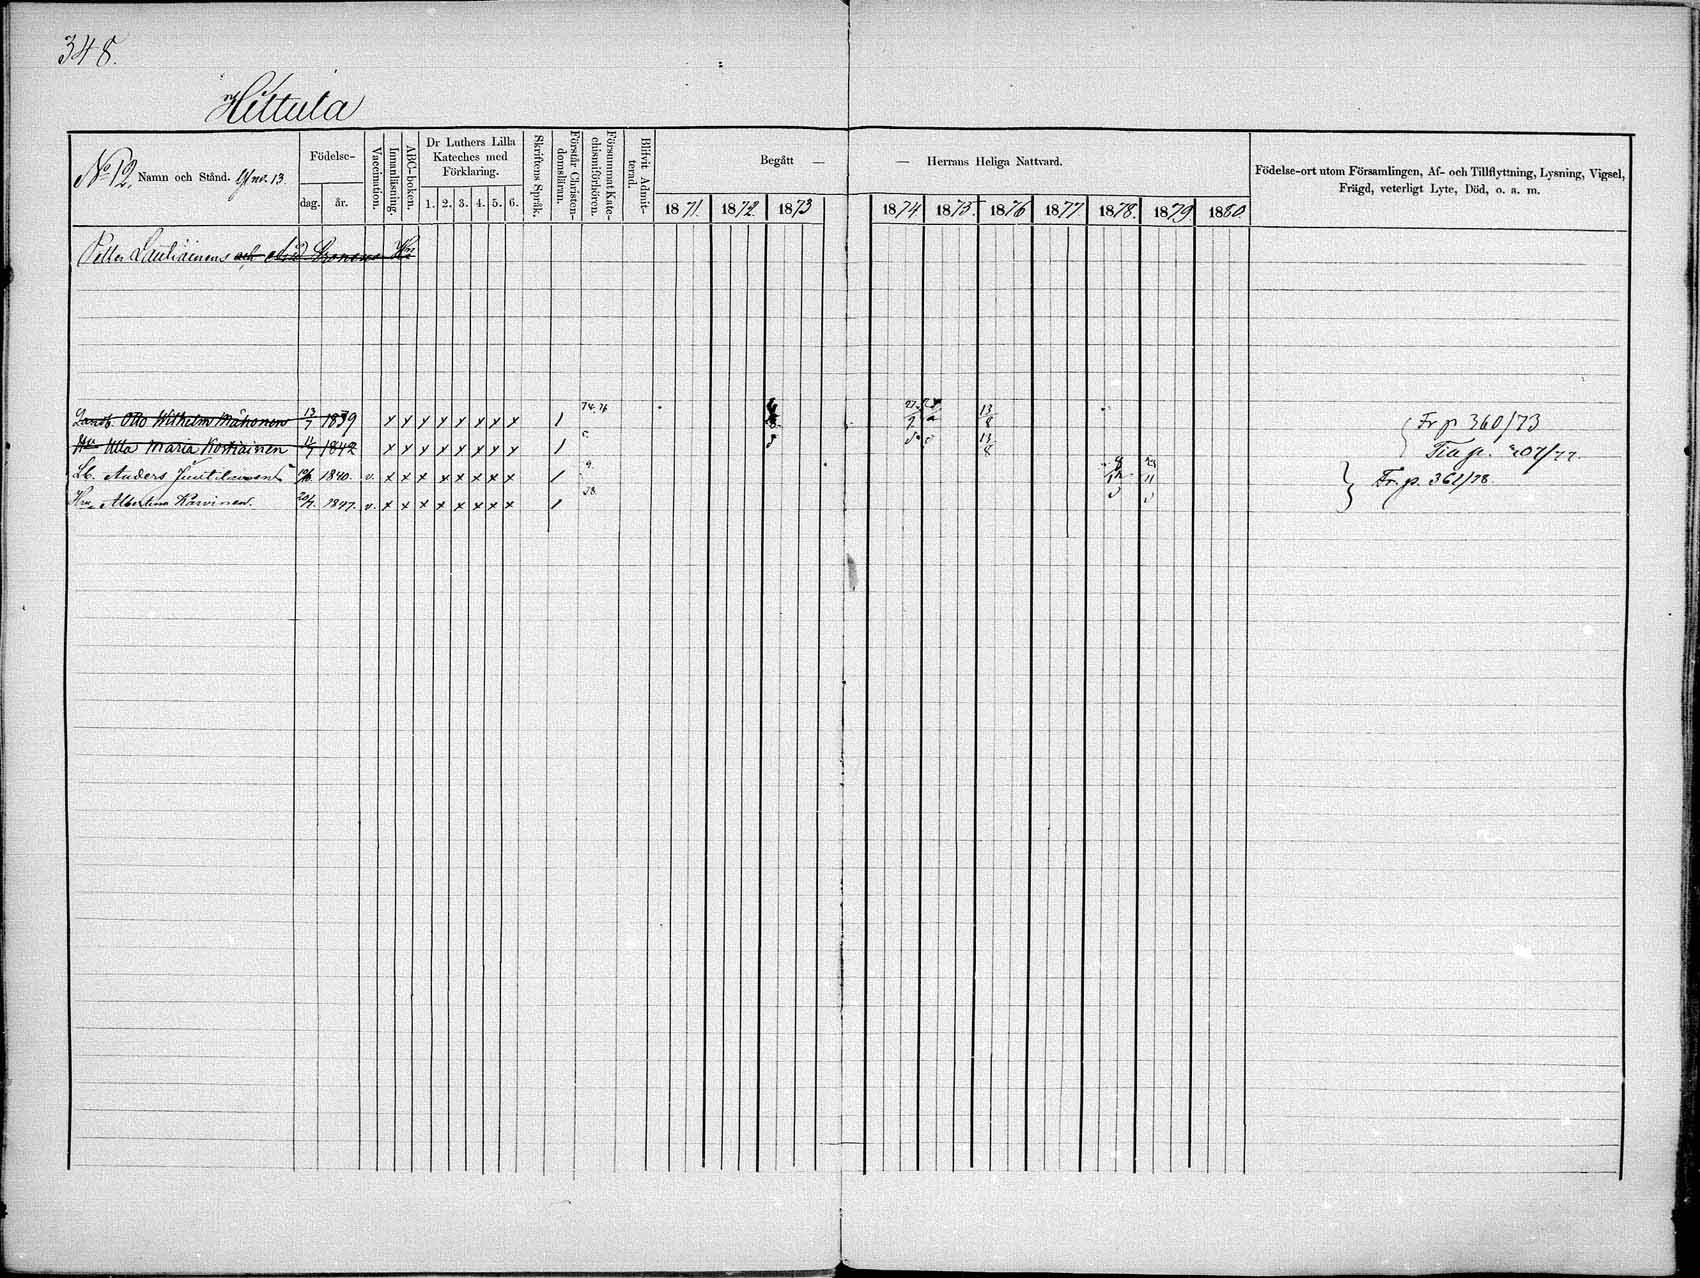 348.
Hittula
No 12. Namn och Stånd.
Födelse-
dag. år.
Vaccination.
Innanläsning.
ABC-boken.
Dr Luthers Lilla
Kateches med
Förklaring.
1. 2. 3. 4. 5. 6.
Skriftens Språk.
Förstår Christen-
domsläran.
Försummat Kate-
chismiförhören.
Blifvit Admit-
terad.
Begått — — Herrans Heliga Nattvard.
1871. 1872. 1873 1874 1875. 1876 1877. 1878. 1879 1880.
Födelse-ort utom Församlingen, Af- och Tillflyttning, Lysning, Vigsel,
Frägd, veterligt Lyte, Död, o. a. m.
Petter Lautiainens och
Otto Wilhelm 13/7 1839 x x x x x x x x 1 74. 76 13/8 Fr p 360/73
Ulla Maria 1842 x x x x x x x x 1 13/8
Lb. Anders 1840. v. x x x x x x x x 1 Fr. p. 361/78
Albertina Karvinen. 1847. v. x x x x x x x x 1 78.